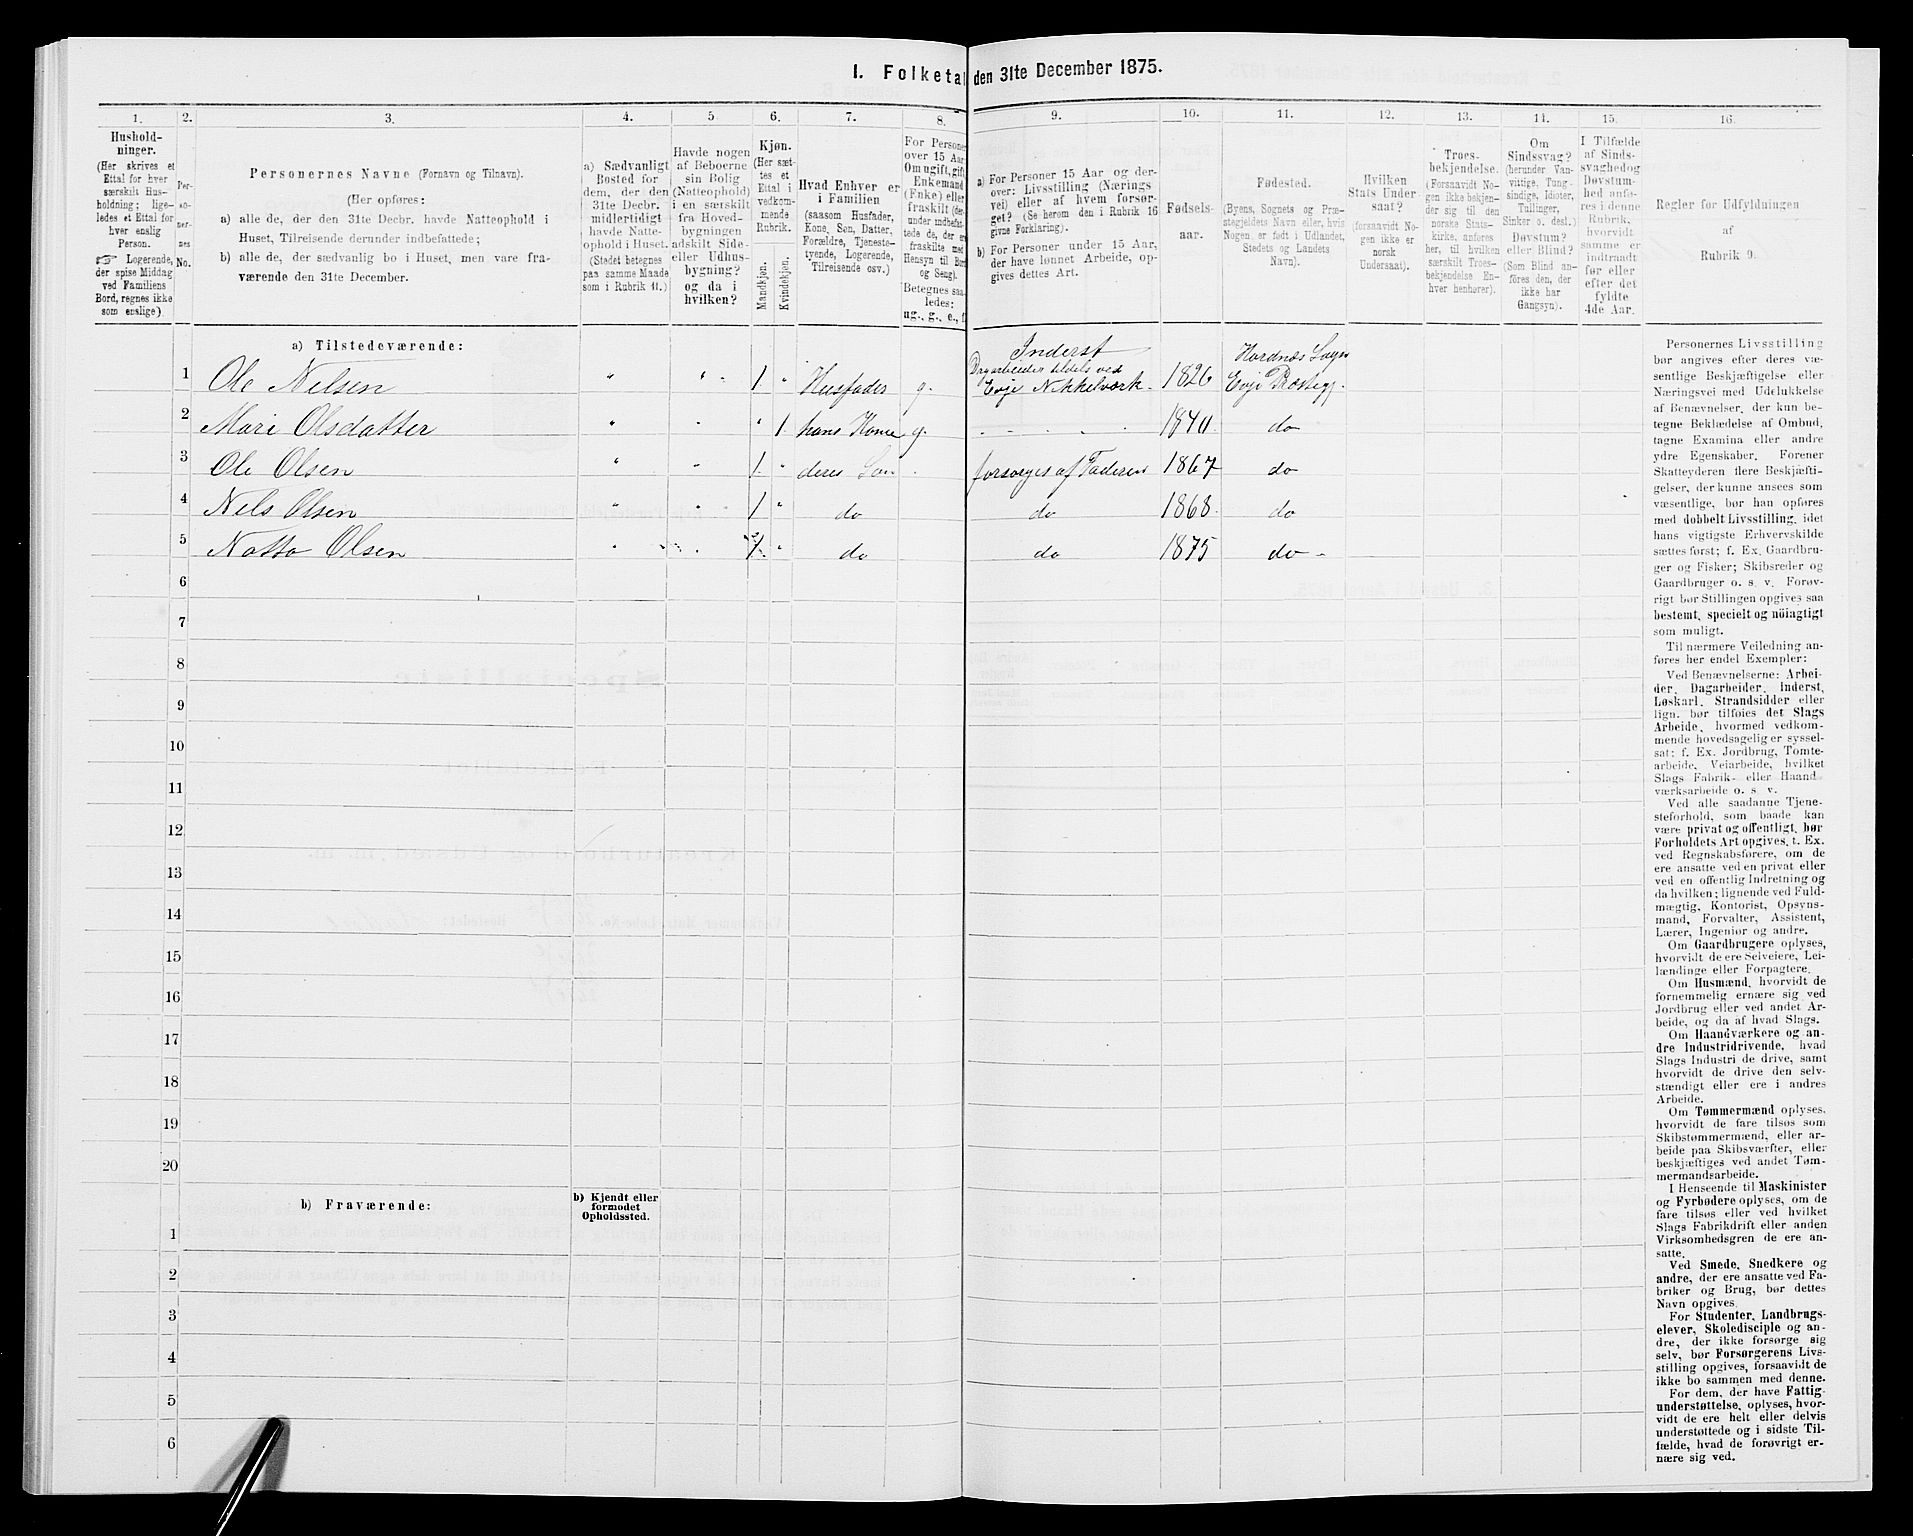 I. Folketal den 31te December 1875.
1.
2.
3.
4.
5.
6.
7.
8.
9.
10.
11.
12.
13.
14.
15.
16.
Hushold-
ninger.
(Her skrives et
Ettal for hver
særskilt Hus-
holdning; lige-
ledes et Ettal for
hver enslig
Person.
☞ Logerende,
der spise Middag
ved Familiens
Bord, regnes ikke
som enslige).
Per-
so-
ner-
nes
No.
Personernes Navne (Fornavn og Tilnavn).
(Her opføres:
a) alle de, der den 31te Decbr. havde Natteophold i
Huset, Tilreisende derunder indbefattede;
b) alle de, der sædvanlig bo i Huset, men vare fra-
værende den 31te December.
a) Sædvanligt
Bosted for
dem, der den
31te Decbr.
midlertidigt
havde Natte-
ophold i Huset.
(Stedet betegnes
paa samme Maade
som i Rubrik 11.)
Havde nogen
af Beboerne
sin Bolig
(Natteophold)
i en særskilt
fra Hoved-
bygningen
adskilt Side-
eller Udhus-
bygning?
og da i
hvilken?
Kjøn.
(Her sæt-
tes et
Ettal i
vedkom-
mende
Rubrik.
Mandkjøn.
Kvindekjøn.
Hvad Enhver er
i Familien
(saasom Husfader,
Kone, Søn, Datter,
Forældre, Tjeneste-
tyende, Logerende,
Tilreisende osv.)
For Personer
over 15 Aar
Om ugift, gift,
Enkemand
(Enke) eller
fraskilt (der-
under indbefat-
tede de, der ere
fraskilte med
Hensyn til Bord
og Seng).
Betegnes saa-
ledes:
ug., g., e., f.
a) For Personer 15 Aar og der-
over: Livsstilling (Nærings-
vei) eller af hvem forsør-
get? (Se herom den i Rubrik 16
givne Forklaring).
b) For Personer under 15 Aar,
der have lønnet Arbeide, op-
gives dettes Art.
Fødsels-
aar.
Fødested.
(Byens, Sognets og Præ-
stegjeldets Navn eller, hvis
Nogen er født i Udlandet,
Stedets og Landets
Navn).
Hvilken
Stats Under
saat?
(forsaavidt No-
gen ikke er
norsk
Undersaat).
Troes-
bekjendelse.
(Forsaavidt No-
gen ikke bekjen-
der sig til den
norske Stats-
kirke, anføres
her, til hvilken
særskilt Troes-
bekjendelse En-
hver henhører).
Om
Sindssvag?
(herunder Van-
vittige, Tung-
sindige, Idioter,
Tullinger,
Sinker o. desl.)
Døvstum?
eller Blind?
(Som Blind an-
føres den, der
ikke har
Gangsyn).
I Tilfælde
af Sinds-
svaghed og
Døvstum-
hed anfø-
res i denne
Rubrik,
hvorvidt
samme er
indtraadt
før eller
efter det
fyldte
4de Aar.
Regler for Udfyldningen
af
Rubrik 9.
a) Tilstedeværende:
1 Ole Nelsen " " 1 " Husfader g. Inderst Dagarbeider tildels ved Evje Nikkelværk. 1826 Hordnæs Sogn Evje Præstegj.
2 Mari Olsdatter " " " 1 hans Kone g. 1840 do
3 Ole Olsen " " 1 " deres Søn forsørges af Faderen 1867 do
4 Nels Olsen " " 1 " do do 1868 do
5 Olsen " 1 " do do 1875 do
6
7
8
9
10
11
12
13
14
15
16
17
18
19
20
b) Fraværende:
b) Kjendt eller
formodet
Opholdssted.
1
2
3
4
5
6
Personernes Livsstilling
bør angives efter deres væ-
sentlige Beskjæftigelse eller
Næringsvei med Udelukkelse
af Benævnelser, der kun be-
tegne Beklædelse af Ombud,
tagne Examina eller andre
ydre Egenskaber. Forener
Skatteyderen flere Beskjæfti-
gelser, der kunne ansees som
væsentlige, bør han opføres
med dobbelt Livsstilling, idet
hans vigtigste Erhvervskilde
sættes først; f. Ex. Gaardbru-
ger og Fisker; Skibsreder og
Gaardbruger o. s. v. Forøv-
rigt bør Stillingen opgives saa
bestemt, specielt og nöiagtigt
som muligt.
Til nærmere Veiledning an-
føres her endel Exempler:
Ved Benævnelserne: Arbei-
der, Dagarbeider, Inderst,
Løskarl, Strandsidder eller
lign. bør tilføies det Slags
Arbeide, hvormed vedkom-
mende hovedsagelig er syssel-
sat; f. Ex. Jordbrug, Tomte-
arbeide, Veiarbeide, hvilket
Slags Fabrik- eller Haand-
værksarbeide o. s. v.
Ved alle saadanne Tjene-
steforhold, som baade kan
være privat og offentligt, bør
Forholdets Art opgives, t. Ex.
ved Regnskabsførere, om de
ere ansatte ved en privat eller
ved en offentlig Indretning og
da hvilken; lignende ved Fuld-
mægtig, Kontorist, Opsyns-
mand, Forvalter, Assistent,
Lærer, Ingeniør og andre.
Om Gaardbrugere oplyses,
hvorvidt de ere Selveiere, Lei-
lændinge eller Forpagtere.
Om Husmænd, hvorvidt de
fornemmelig ernære sig ved
Jordbrug eller ved andet Ar-
beide, og da af hvad Slags.
Om Haandværkere og an-
dre Industridrivende, hvad
Slags Industri de drive, samt
hvorvidt de drive den selv-
stændigt eller ere i andres
Arbeide.
Om Tømmermænd oplyses,
hvorvidt de fare tilsøs som
Skibstømmermænd, eller ar-
beide paa Skibsværfter, eller
beskjæftiges ved andet Tøm-
mermandsarbeide.
I Henseende til Maskinister
og Fyrbødere oplyses, om de
fare tilsøs eller ved hvilket
Slags Fabrikdrift eller anden
Virksomhedsgren de ere an-
satte.
Ved Smede, Snedkere og
andre, der ere ansatte ved Fa-
briker og Brug, bør dettes
Navn opgives.
For Studenter, Landbrugs-
elever, Skoledisciple og an-
dre, der ikke forsørge sig
selv, bør Forsørgerens Livs-
stilling opgives, forsaavidt de
ikke bo sammen med denne.
For dem, der have Fattig-
understøttelse, oplyses, hvor-
vidt de ere helt eller delvis
understøttede og i sidste Til-
fælde, hvad de forøvrigt er-
nære sig ved.